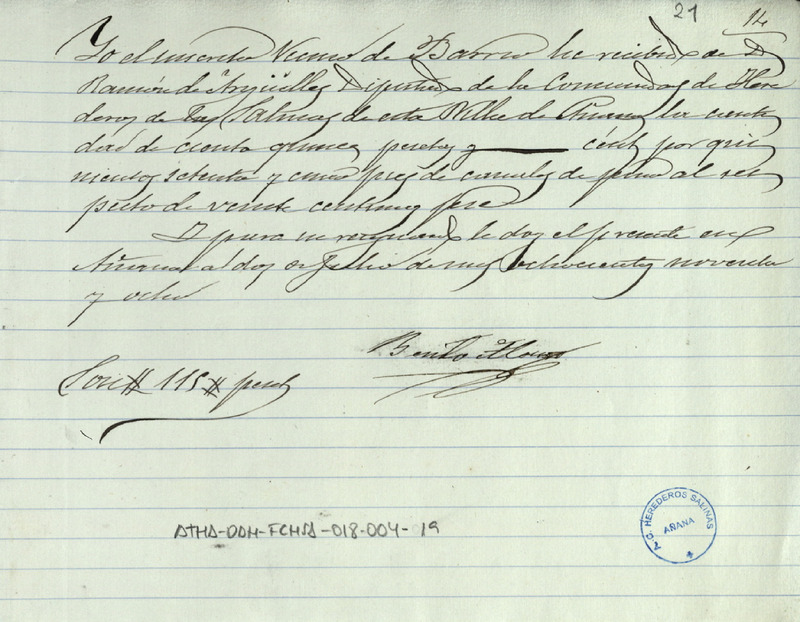 21 14
Yo el infrascrito Vecino de Barrio he recibido de D
Ramón de Argüelles Diputado de la Comunidad de Here
deros de las Salinas de esta Villa de Añana la canti
dad de ciento quince pesetas y — cént por qui
nientos setenta y cinco pies de canales de pino al res
pecto de veinte centimos pese
Y para su resguardo le doy el presente en
Añana a dos de Julio de mil ochocientos noventa
y ocho
Benito Alonso
Son # 115 # peset
ATHA-DAH-FCHSA-018-004-19
A.G. HEREDEROS SALINAS
AÑANA